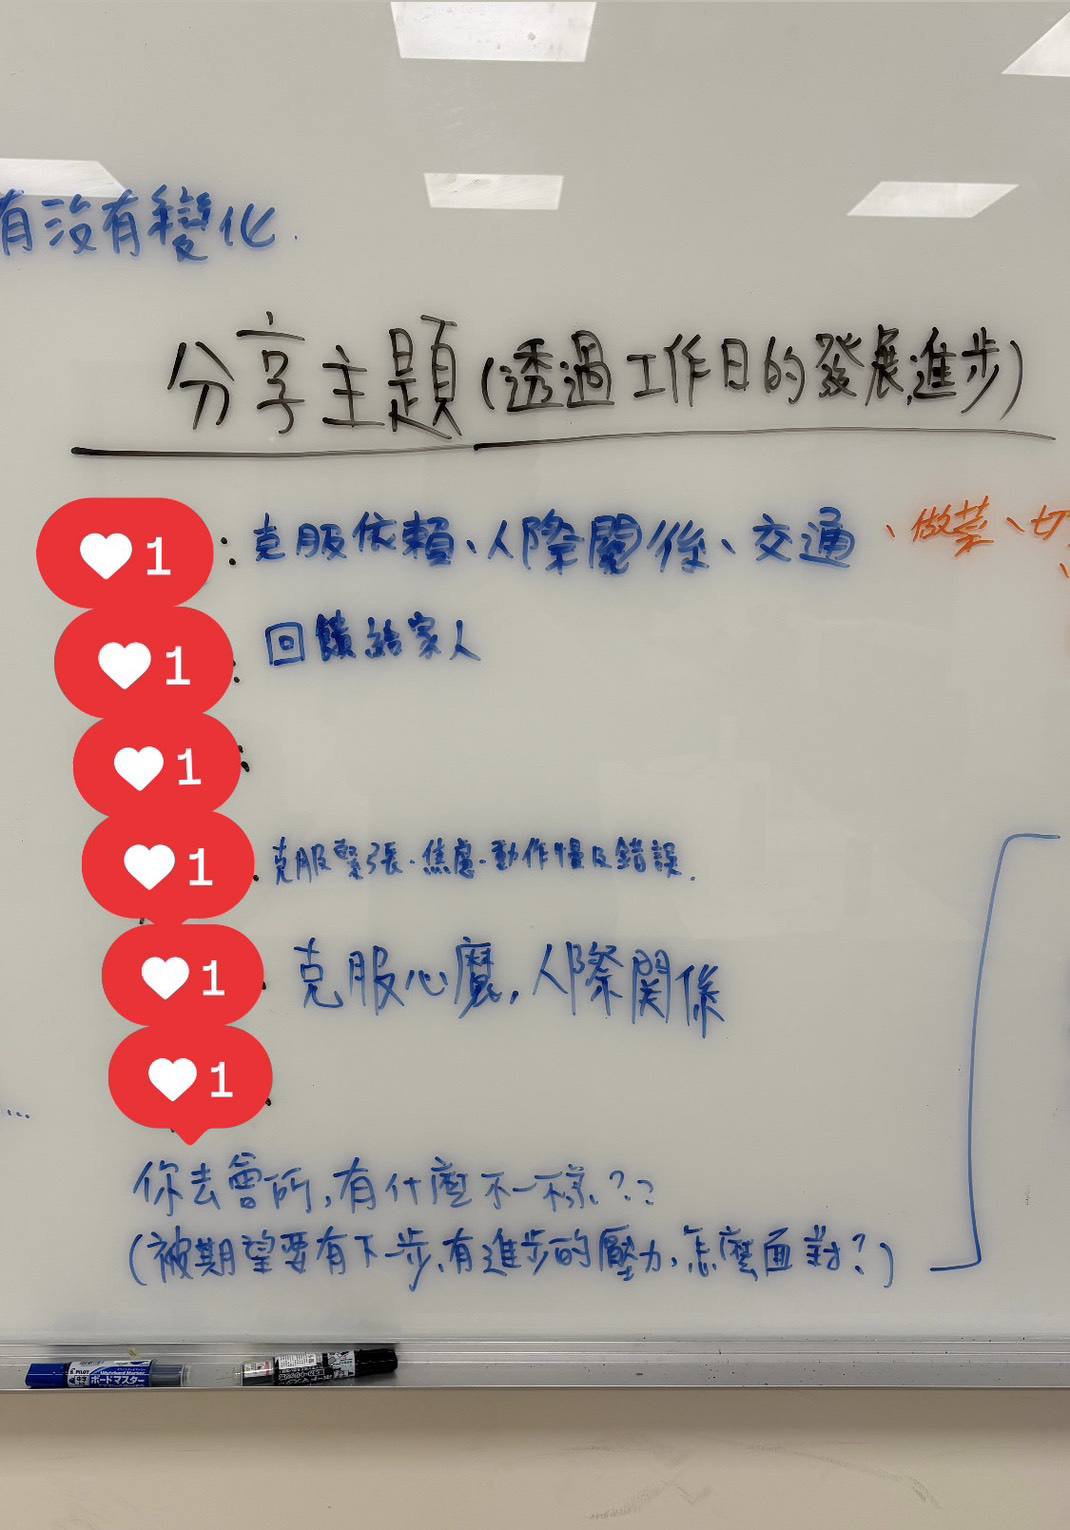 有沒有變化.
分享主題(透過工作日的發展,進步)
1 : 克服依賴、人際關係、交通、做菜、切
1 : 回饋給家人
1 :
1 : 克服緊張.焦慮.動作慢及錯誤.
1 : 克服心魔,人際關係
1
...
你去會所,有什麼不一樣???
(被期望要有下一步、有進步的壓力,怎麼面對?)
PILOT
ボードマスター